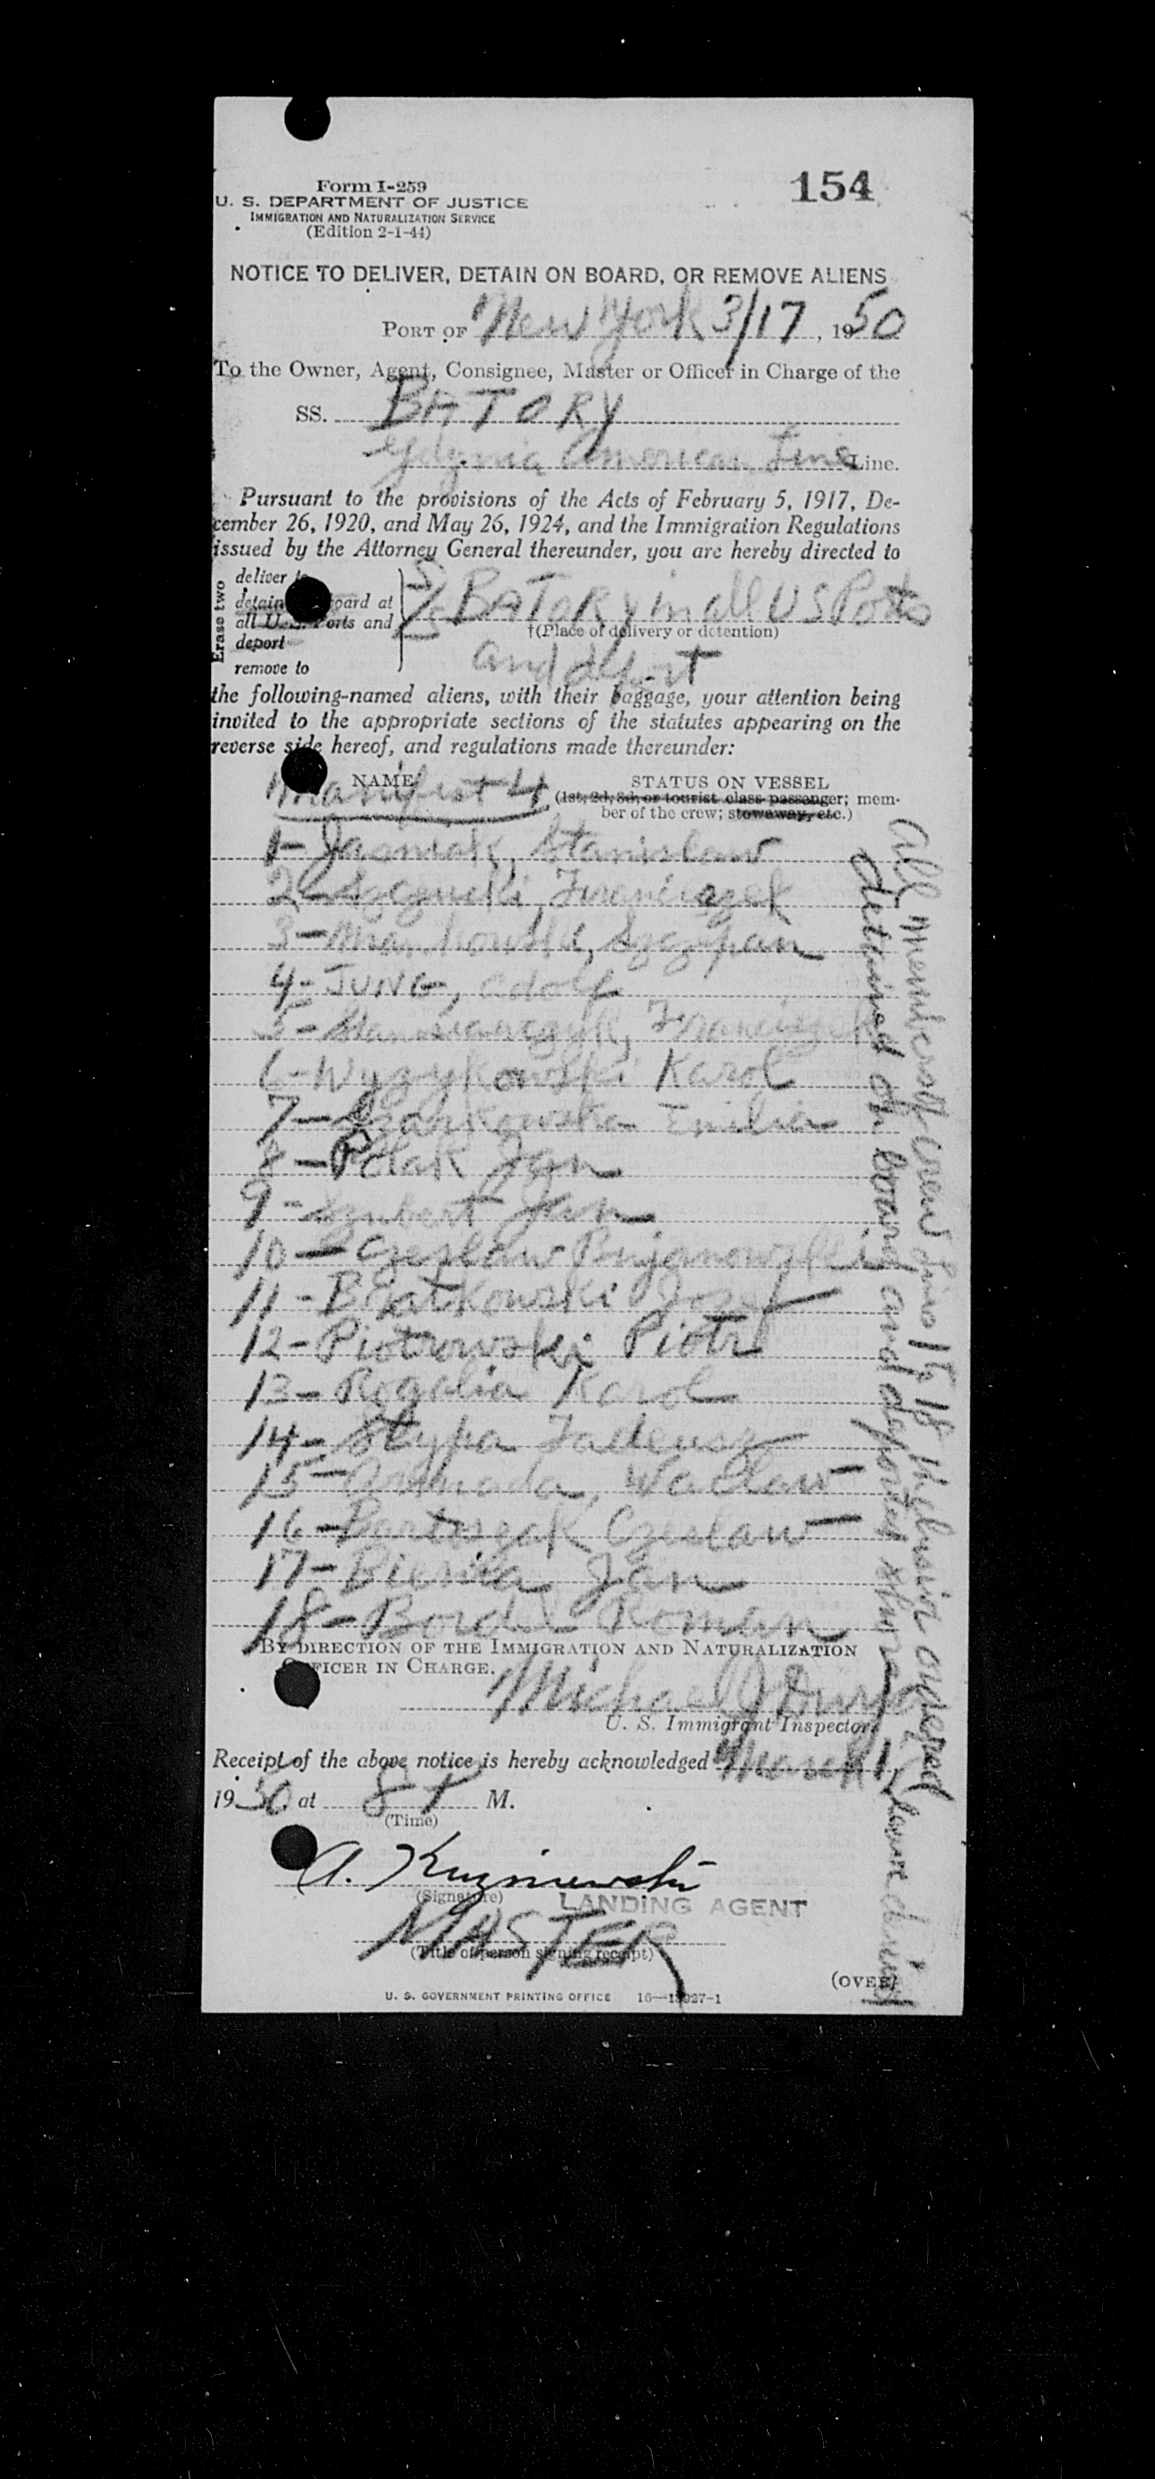 154
Form I-259
U. S. DEPARTMENT OF JUSTICE
IMMIGRATION AND NATURALIZATION SERVICE
(Edition 2-1-44)
NOTICE TO DELIVER, DETAIN ON BOARD, OR REMOVE ALIENS
PORT OF New York 3/17, 1950
To the Owner, Agent, Consignee, Master or Officer in Charge of the
SS. BATORY
Gdynia American Line Line.
Pursuant to the provisions of the Acts of February 5, 1917, De-
cember 26, 1920, and May 26, 1924, and the Immigration Regulations
issued by the Attorney General thereunder, you are hereby directed to
Erase two
deliver to
detain board at
all U.S. Ports and
deport
remove to
S/S BATORY in all US Ports
†(Place of delivery or detention)
and deport
the following-named aliens, with their baggage, your attention being
invited to the appropriate sections of the statutes appearing on the
reverse side hereof, and regulations made thereunder:
NAME
STATUS ON VESSEL
Manifest 4
(1st, 2d, 3d, or tourist class passenger; mem-
ber of the crew; stowaway, etc.)
1- Jasniak, Stanislaw
2- Franciszek
3- Szczepan
4- JUNG, Adolf
5- Franciszek
6- Wyzykowski Karol
7- Emilia
8- Polak Jan
9- Szubert Jan
10- Czeslaw
11- Jozef
12- Piotrowski Piotr
13- Rogalia Karol
14- Stypa Tadeusz
15- Waclaw
16- Bartoszak Czeslaw
17- Jan
18- Roman
All members of crew Lines 1 to 18 inclusive ordered
detained on board and deported
BY DIRECTION OF THE IMMIGRATION AND NATURALIZATION
OFFICER IN CHARGE.
Michael J
U. S. Immigrant Inspector.
Receipt of the above notice is hereby acknowledged March 17
1950 at 8 M.
(Time)
A. Kuzniewski
(Signature)
LANDING AGENT
MASTER
(Title of person signing receipt)
(OVER)
U. S. GOVERNMENT PRINTING OFFICE